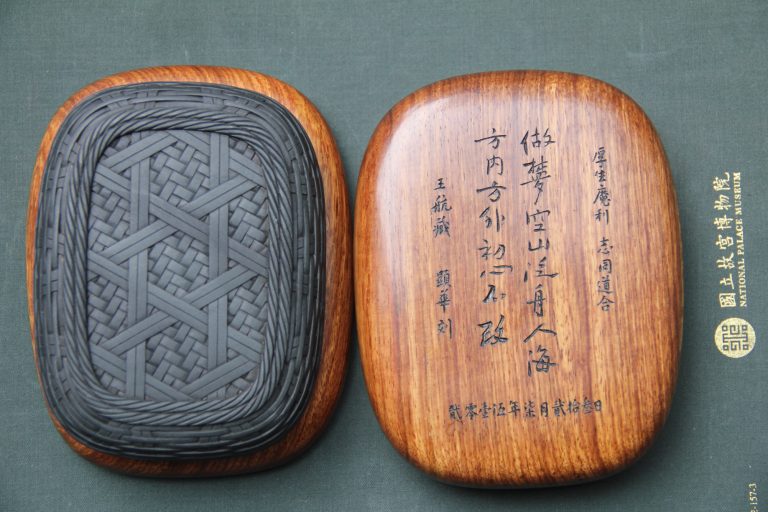 厚生魔利 志同道合
做梦空山泛舟人海
方内方外初心不改
王航藏 顕華刻
貳零壹伍年柒月貳拾叁日
國立故宮博物院
NATIONAL PALACE MUSEUM
-157-3